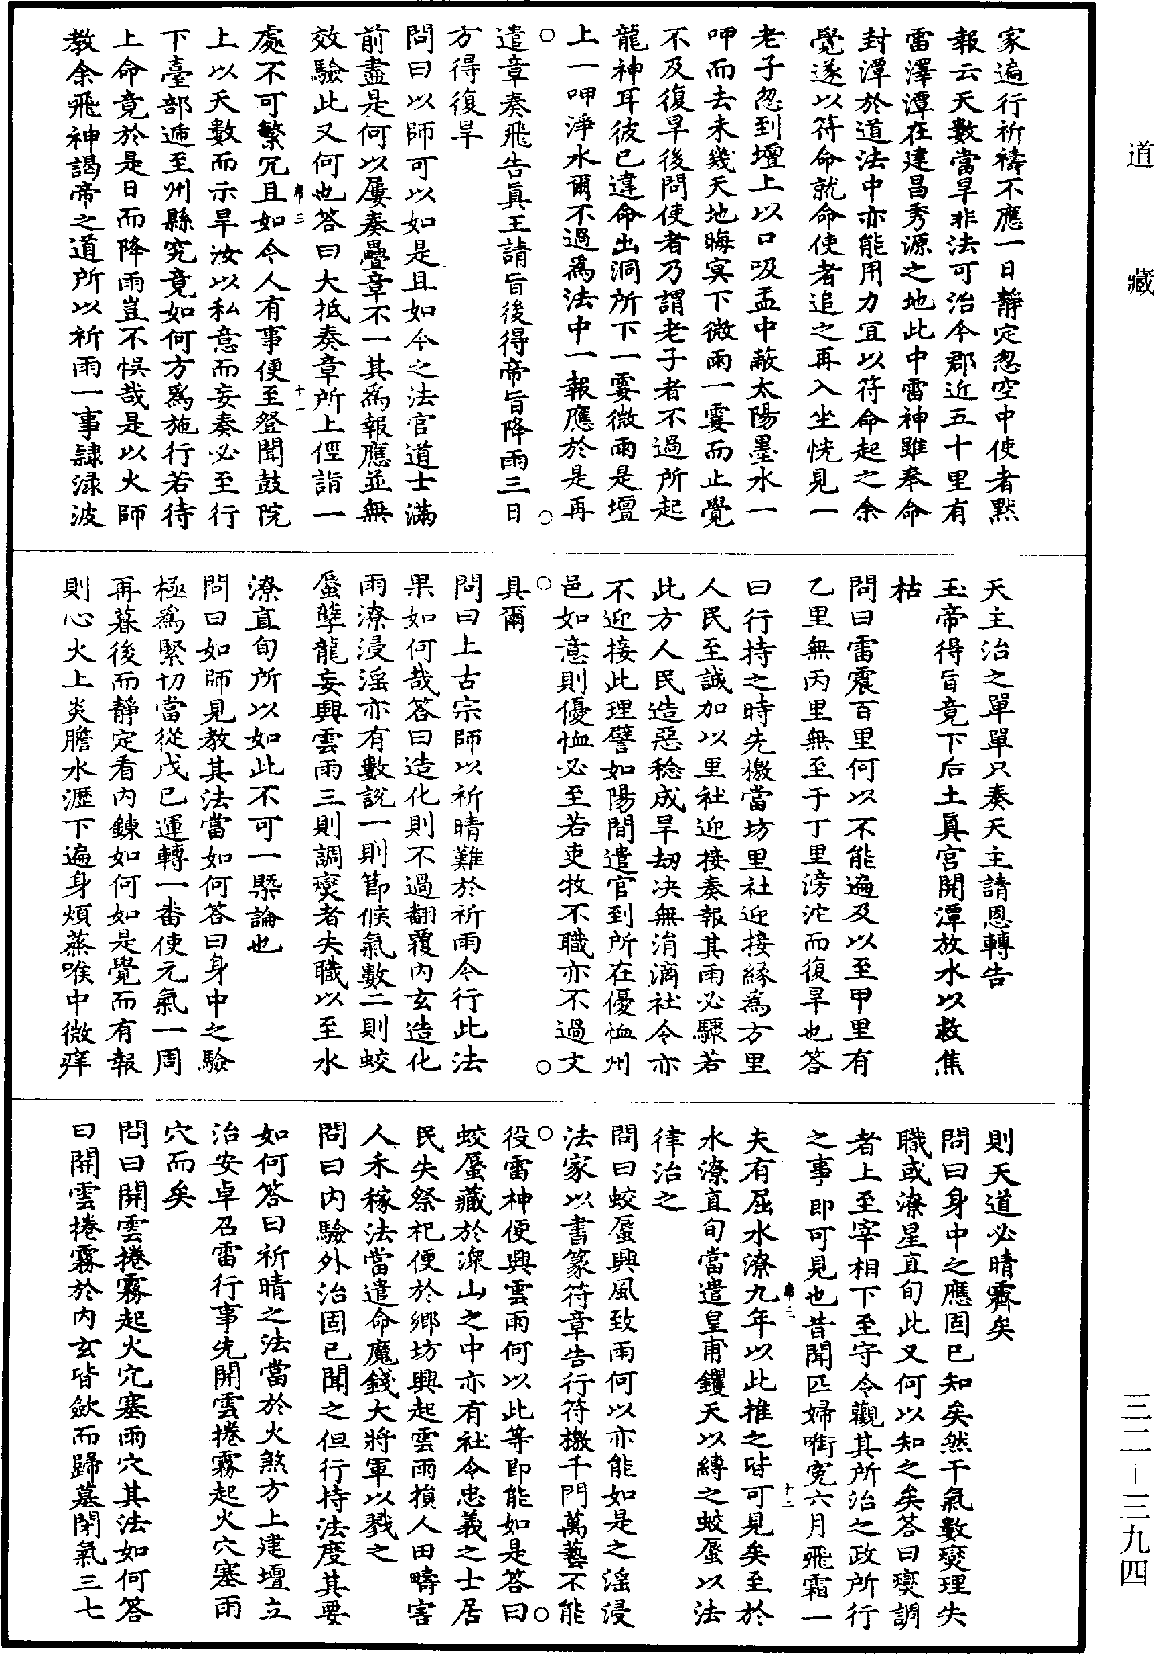 道藏
家遍行祈禱不應一日靜定忽空中使者黙
報云天數當旱非法可治今郡近五十里有
雷澤潭在建昌秀源之地此中雷神雖奉命
封潭於道法中亦能用力宜以符命起之余
覺遂以符命就命使者追之再入坐恍見一
老子忽到壇上以口吸盂中蔽太陽墨水一
呷而去未幾天地晦冥下微雨一霎而止覺
不及復旱後問使者乃謂老子者不過所起
龍神耳彼已違命出洞所下一霎微雨是壇
上一呷淨水爾不過爲法中一報應於是再
○○
遣章奏飛告眞王請旨後得帝旨降雨三日
方得復旱
問曰以師可以如是且如今之法官道士滿
前盡是何以屢奏疊章不一其爲報應並無
效驗此又何也荅曰大抵奏章所上徑詣一
處不可繁冗且如今人有事便至登聞鼓院
上以天數而示旱汝以私意而妄奏必至行
下臺部遞至州縣究竟如何方爲施行若待
上命竟於是日而降雨豈不悞哉是以火師
教余飛神謁帝之道所以祈雨一事隷渌波
十一
天主治之單單只奏天主請恩轉告
玉帝得旨竟下后土眞宮開潭放水以救焦
枯
問曰雷震百里何以不能遍及以至甲里有
乙里無丙里無至于丁里滂沱而復旱也荅
曰行持之時先檄當坊里社迎接緣爲方里
人民至誠加以里社迎接奏報其雨必驟若
此方人民造惡稔成旱劫决無涓滴社令亦
不迎接此理譬如陽間遣官到所在優恤州
邑如意則優恤必至若吏牧不職亦不過文
○○
具爾
問曰上古宗師以祈晴難於祈雨今行此法
果如何哉荅曰造化則不過翻覆內玄造化
雨潦浸淫亦有數說一則節候氣數二則蛟
蜃孽龍妄興雲雨三則調燮者失職以至水
潦直旬所以如此不可一槩論也
問曰如師見教其法當如何荅曰身中之驗
極爲緊切當從戊已運轉一番使元氣一周
再暮後而靜定看內鍊如何如是覺而有報
則心火上炎膽水瀝下遍身煩蒸喉中微痒
則天道必晴霽矣
問曰身中之應固已知矣然干氣數燮理失
職或潦星直旬此又何以知之矣荅曰燮調
者上至宰相下至守令觀其所治之政所行
之事即可見也昔聞匹婦啣寃六月飛霜一
夫有屈水潦九年以此推之皆可見矣至於
十二
水潦直旬當遣皇甫钁天以縛之蛟蜃以法
律治之
問曰蛟蜃興風致雨何以亦能如是之淫浸
法家以書篆符章告行符檄千門萬藝不能
○○
役雷神便興雲雨何以此等即能如是荅曰
蛟蜃藏於深山之中亦有社令忠義之士居
民失祭祀便於鄉坊興起雲雨損人田疇害
人禾稼法當遣命魔錢大將軍以戮之
問曰內驗外治固已聞之但行持法度其要
如何荅曰祈晴之法當於火煞方上建壇立
治安卓召雷行事先開雲捲霧起火穴塞雨
穴而矣
問曰開雲捲霧起火穴塞雨穴其法如何荅
曰開雲捲霧於內玄皆歛而歸墓閉氣三七
三二―三九四